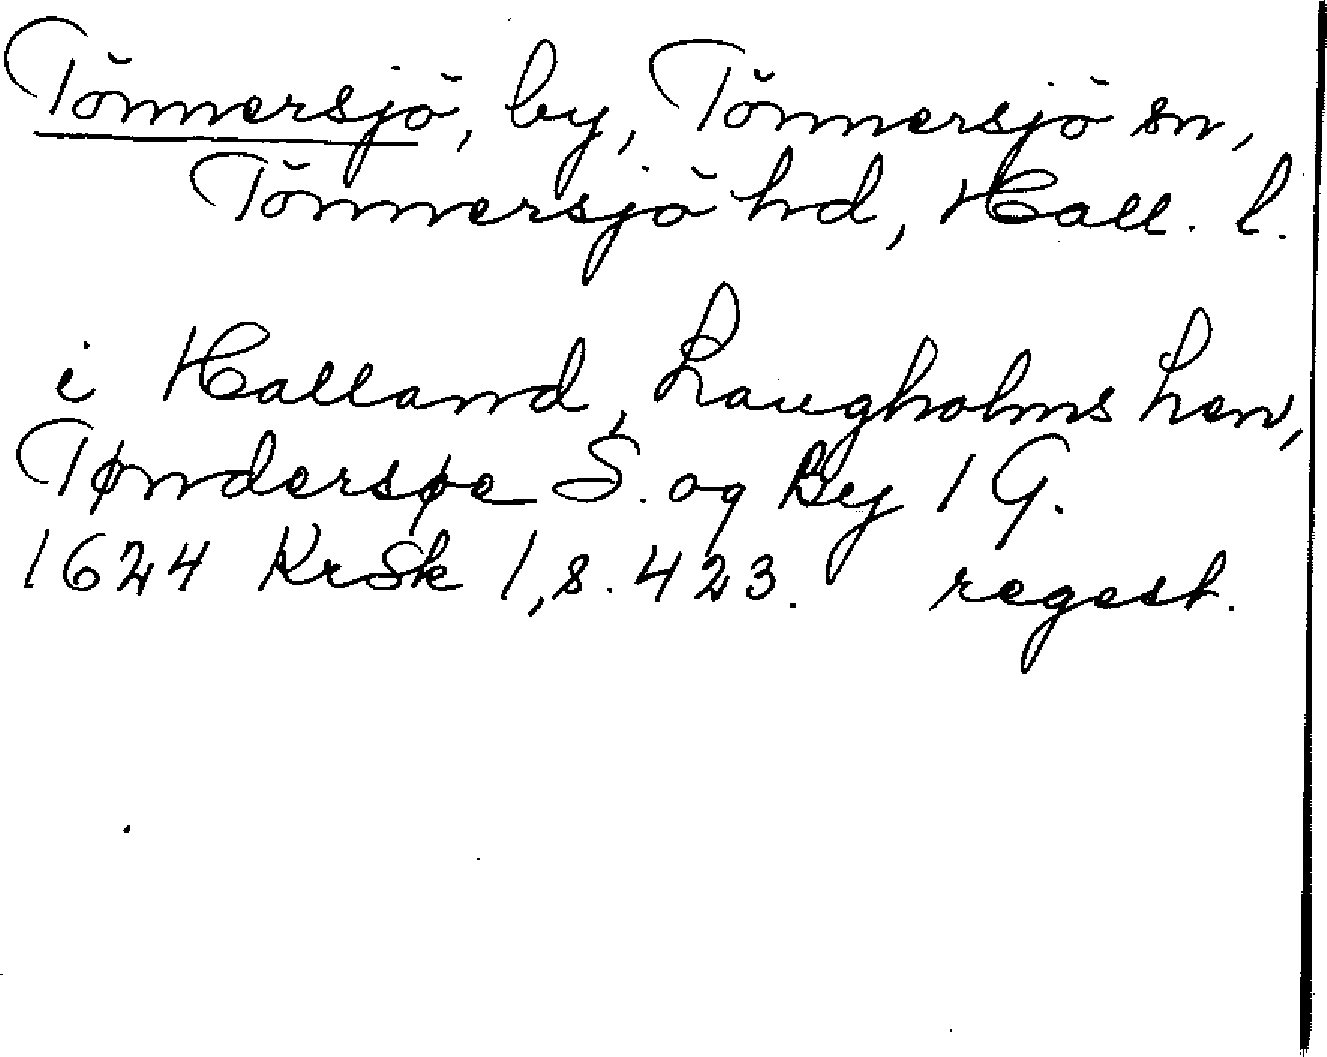 Tönnersjö, by, Tönnersjö sn,
Tönnersjö hd, Hall. l.
i Halland, Laugholms Len,
Tøndersøe S. og By 1 G.
1624 KrSk 1, s. 423. regest.